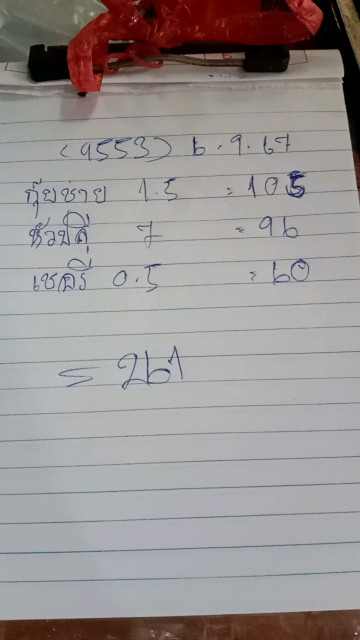 (9553) 6.9.67
กุ๊ยช่าย 1.5 = 105
หัวบดี 7 = 96
เชอรี่ 0.5 = 60
= 261